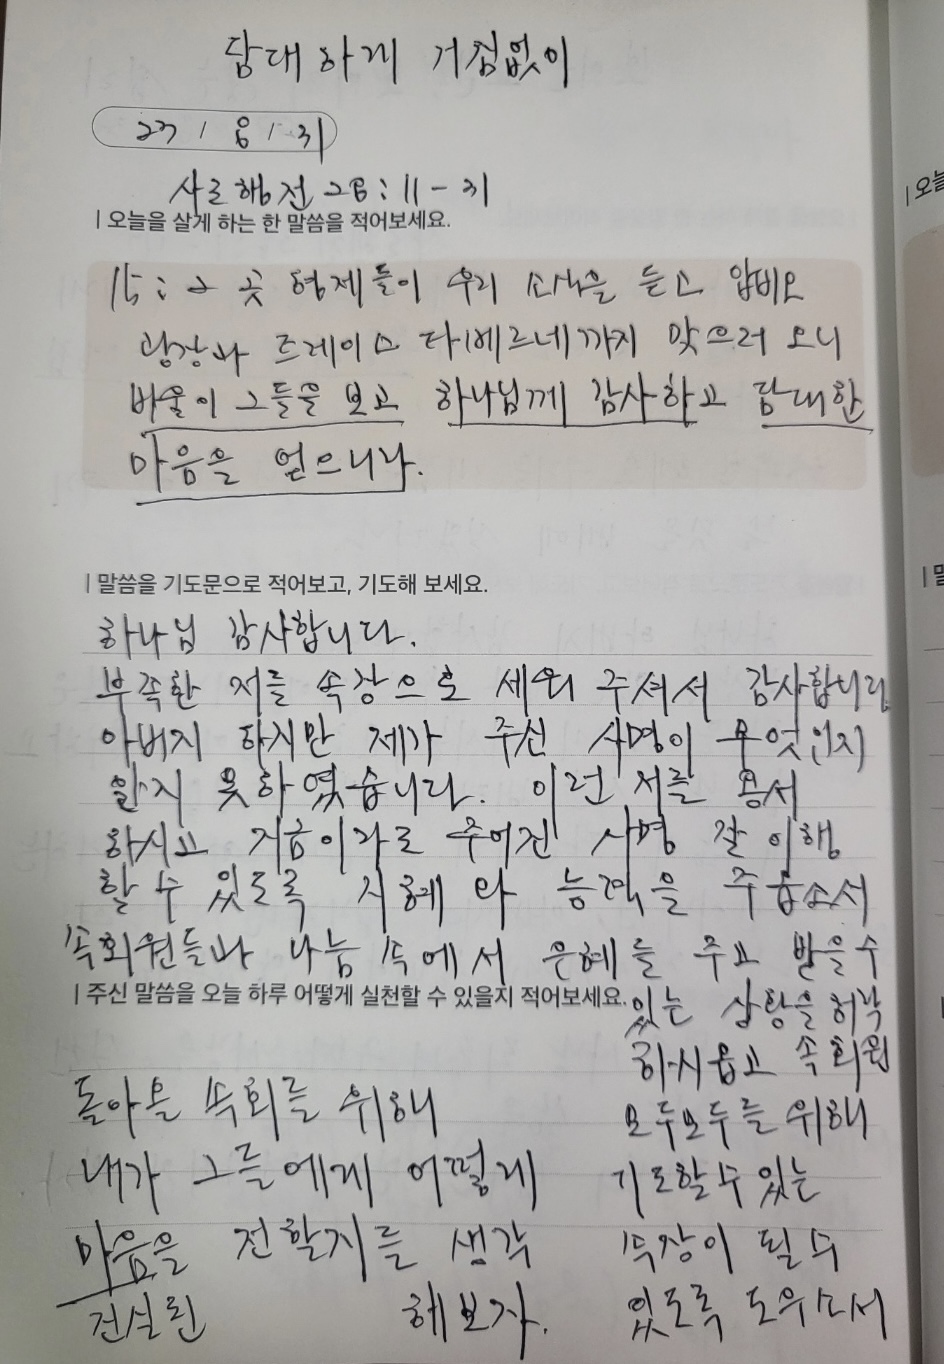 담대하게 거침없이
23 / 8 / 31
사도행전 28 : 11 - 31
| 오늘을 살게 하는 한 말씀을 적어보세요.
15 : 그 곳 형제들이 우리 소식을 듣고 압비오
광장과 트레이스 타베르네까지 맞으러 오니
바울이 그들을 보고 하나님께 감사하고 담대한
마음을 얻으니라.
| 말씀을 기도문으로 적어보고, 기도해 보세요.
하나님 감사합니다.
부족한 저를 속장으로 세워 주셔서 감사합니다
아버지 하지만 제가 주신 사명이 무엇인지
알지 못하였습니다. 이런 저를 용서
하시고 지금이라도 주어진 사명 잘 이행
할 수 있도록 지혜와 능력을 주옵소서
속회원들과 나눔 속에서 은혜를 주고 받을 수
있는 상황을 허락
하시옵고 속회원
모두모두를 위해
기도할 수 있는
속장이 될 수
있도록 도우소서
| 주신 말씀을 오늘 하루 어떻게 실천할 수 있을지 적어보세요.
돌아올 속회를 위해
내가 그들에게 어떻게
마음을 전할지를 생각
진실된 해보자.
| 오늘
| 말